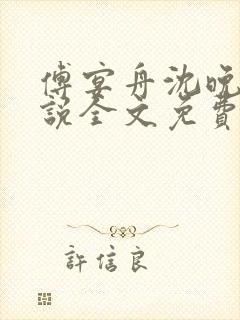 傅宴舟沈晚
說全文免費
許信良